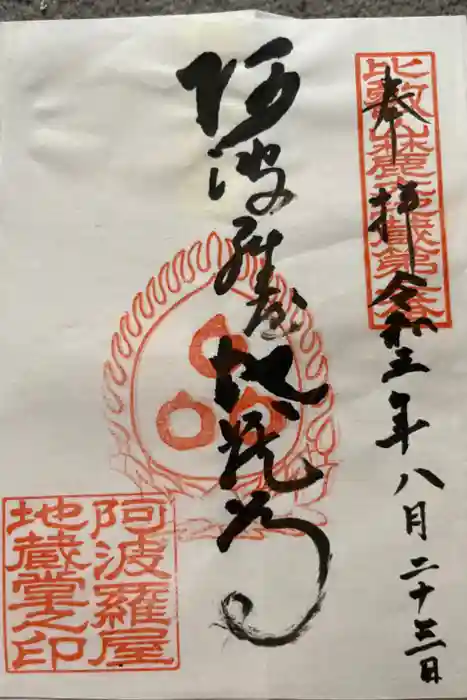 比叡山麓地蔵第番
奉拝 令和三年八月二十三日
阿波羅屋地蔵尊
阿波羅屋
地蔵堂之印